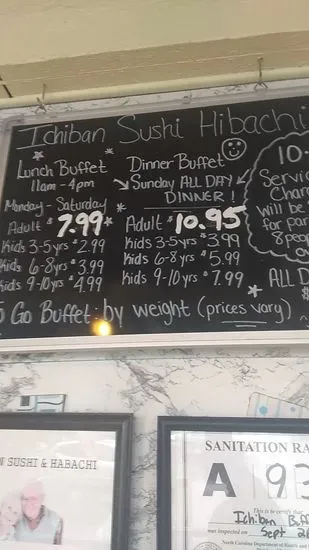 Ichiban Sushi Hibachi
Lunch Buffet
11am - 4pm
Monday - Saturday
Adult $7.99
Kids 3-5 yrs $2.99
Kids 6-8 yrs $3.99
Kids 9-10 yrs $4.99
Dinner Buffet
Sunday ALL DAY
DINNER!
Adult $10.95
Kids 3-5 yrs $3.99
Kids 6-8 yrs $5.99
Kids 9-10 yrs $7.99
10
Servic
Char
will be
for par
8 peop
ALL D
Go Buffet: by weight (prices vary)
SUSHI & HABACHI
SANITATION RA
A 93
This is to certify that
Ichiban Buff
was inspected on Sept 2
North Carolina Department of Health and